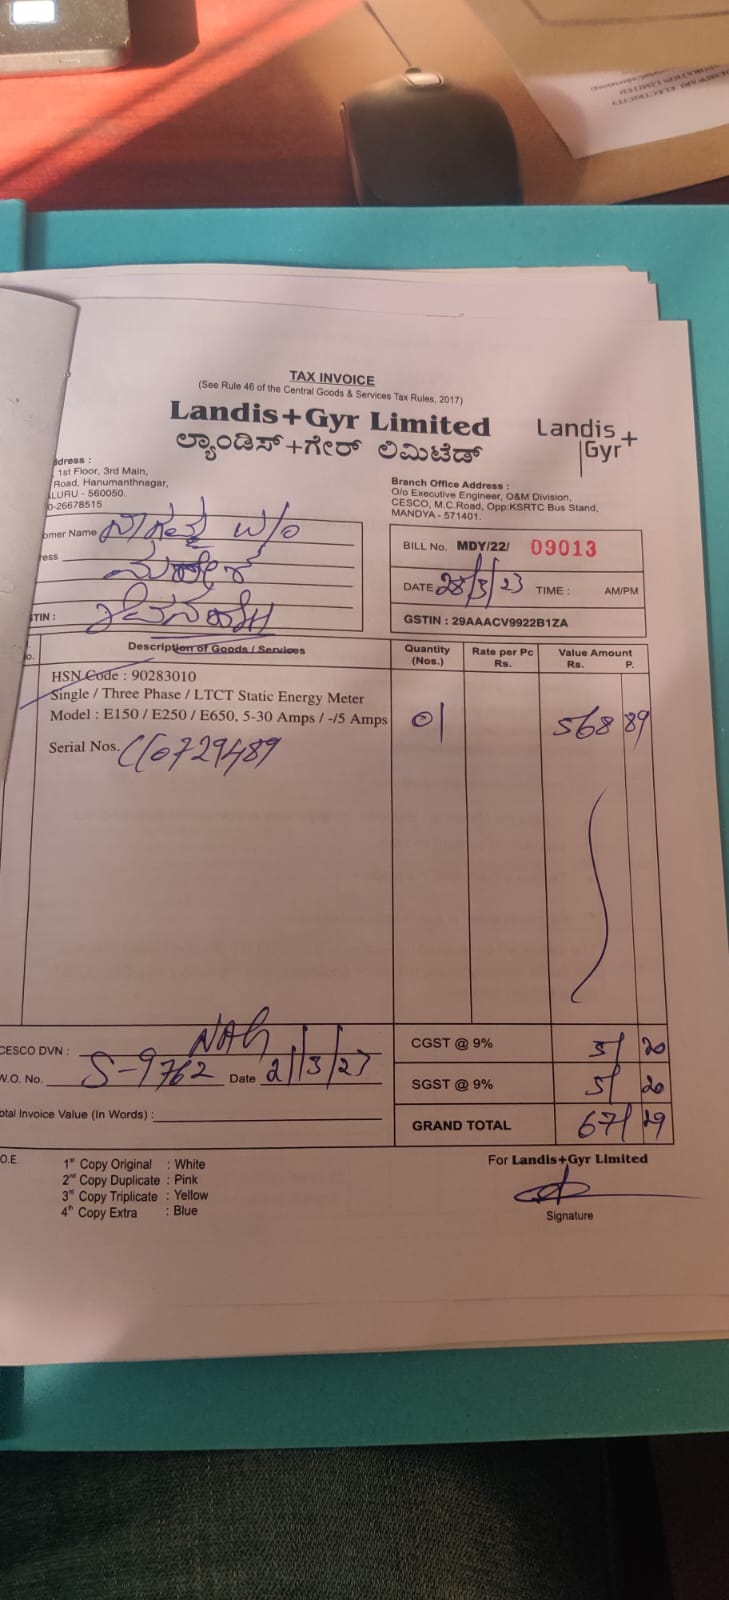 TAX INVOICE
(See Rule 46 of the Central Goods & Services Tax Rules, 2017)
Landis+Gyr Limited
ಲ್ಯಾಂಡಿಸ್+ಗೇರ್ ಲಿಮಿಟೆಡ್
Landis
Gyr+
ddress :
1st Floor, 3rd Main,
Road, Hanumanthnagar,
LURU - 560050.
0-26678515
Branch Office Address :
O/o Executive Engineer, O&M Division,
CESCO, M.C.Road, Opp:KSRTC Bus Stand,
MANDYA - 571401.
omer Name W/o
ress
STIN :
BILL No. MDY/22/ 09013
DATE 28/3/23 TIME : AM/PM
GSTIN : 29AAACV9922B1ZA
o. Description of Goods / Services Quantity (Nos.) Rate per Pc Rs. Value Amount Rs. P.
HSN Code : 90283010
Single / Three Phase / LTCT Static Energy Meter
Model : E150 / E250 / E650, 5-30 Amps / -/5 Amps 01 568 89
Serial Nos. 0729489
CESCO DVN :
W.O. No. S-9762 Date 21/3/23
otal Invoice Value (In Words) :
CGST @ 9% 51 20
SGST @ 9% 51 20
GRAND TOTAL 671 29
O.E.
1st Copy Original : White
2nd Copy Duplicate : Pink
3rd Copy Triplicate : Yellow
4th Copy Extra : Blue
For Landis+Gyr Limited
Signature